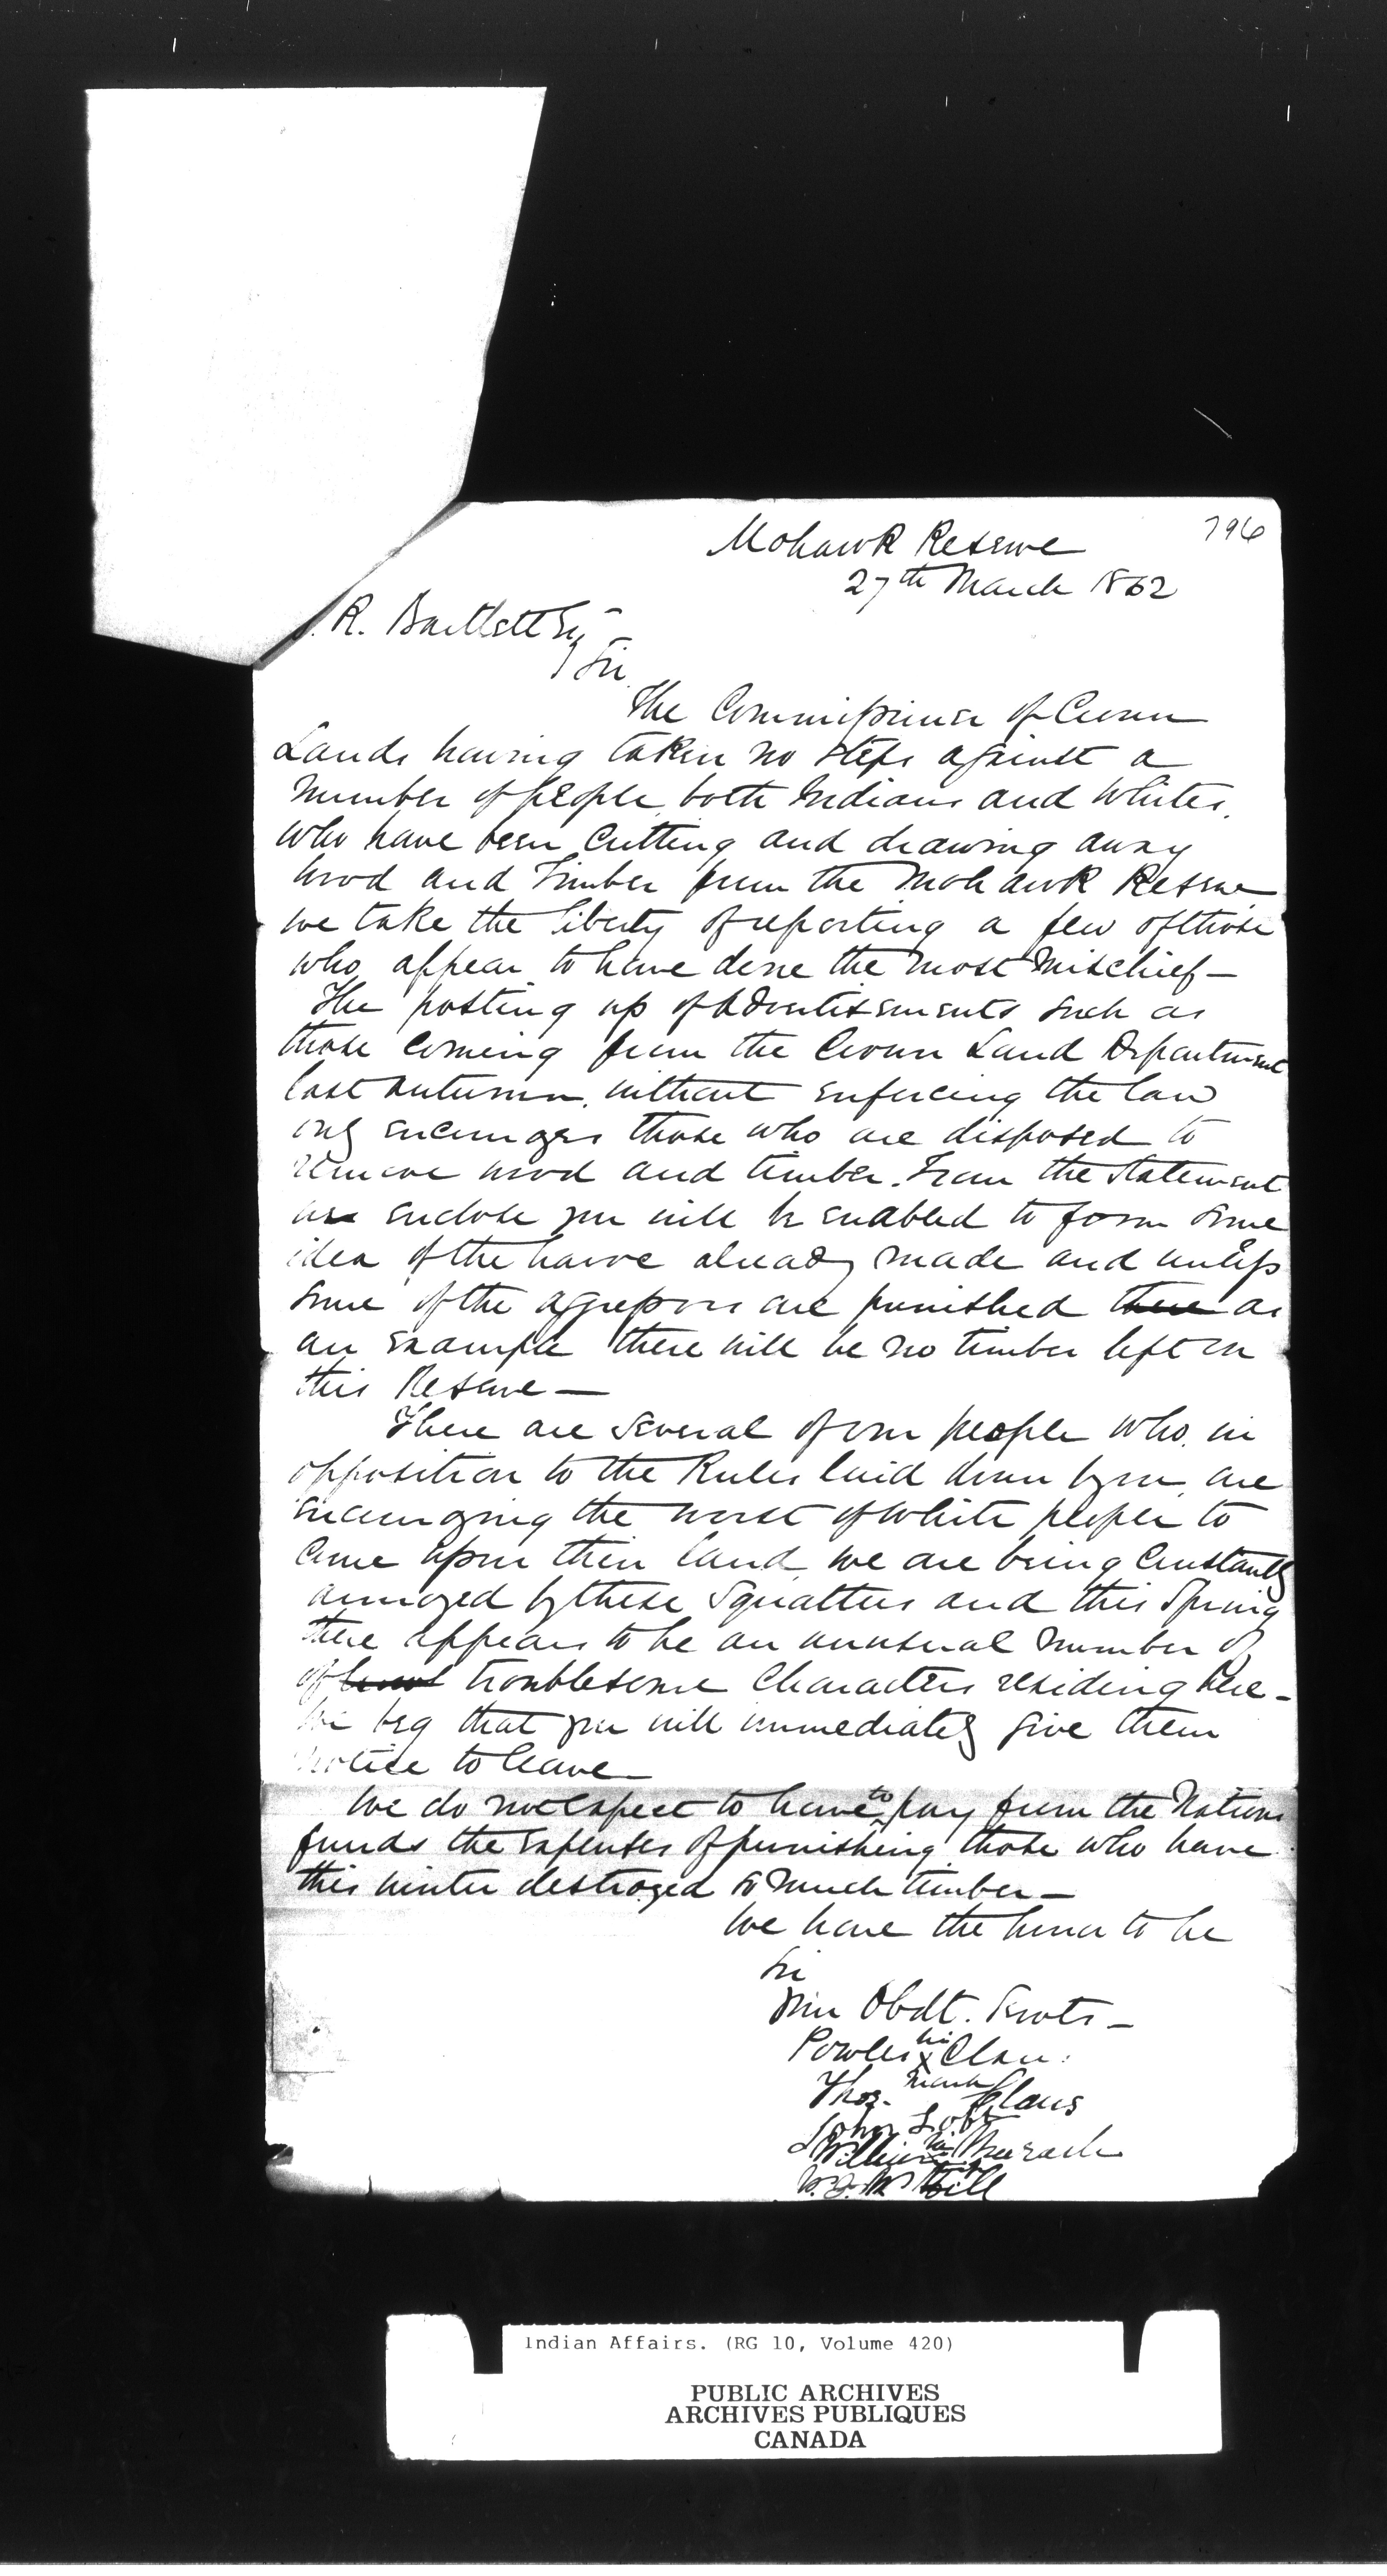 796
Mohawk Reserve
27th March 1862
R. Bartlett Esq
Sir
The Commissioner of Crown
Lands having taken no steps against a
number of people, both Indians and Whites,
who have been cutting and drawing away
wood and timber from the Mohawk Reserve
we take the liberty of reporting a few of those
who appear to have done the most mischief—
The posting up of Advertisements such as
those coming from the Crown Land Department
last Autumn, without enforcing the law
only encourages those who are disposed to
remove wood and timber. From the statement
we enclose you will be enabled to form some
idea of the havoc already made and unless
some of the agressors are punished there as
an example there will be no timber left on
this Reserve—
There are several of our people who, in
opposition to the Rules laid down by you, are
encouraging the worst of white people to
come upon their land, we are being constantly
annoyed by these Squatters and this Spring
there appears to be an unusual number of
of troublesome Characters residing here—
We beg that you will immediately give them
notice to leave—
We do not expect to have to pay from the Nations
funds the expenses of punishing those who have
this winter destroyed so much timber—
We have the honor to be
Sir
Your Obdt. Servts—
Powles his x Claus
mark
Thos. Claus
John Loft
William his
W. J. W. Hill
Indian Affairs. (RG 10, Volume 420)
PUBLIC ARCHIVES
ARCHIVES PUBLIQUES
CANADA